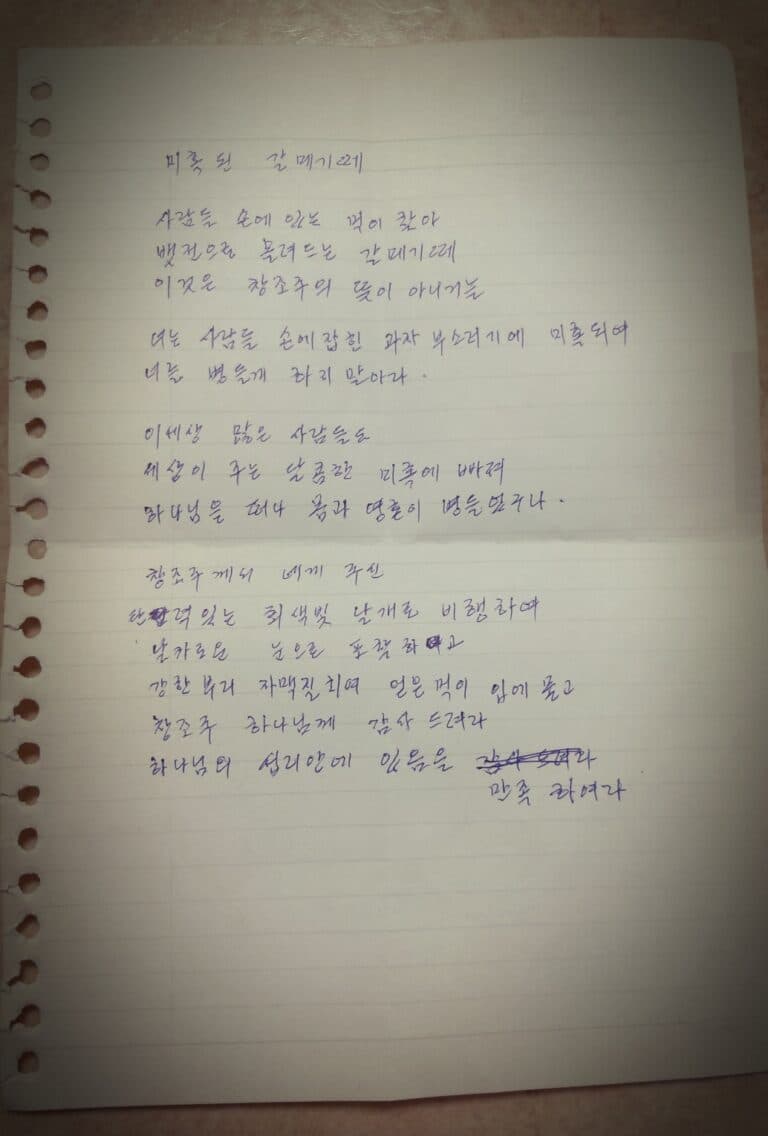 미혹된 갈메기떼
사람들 손에 있는 먹이 찾아
뱃전으로 몰려드는 갈메기떼
이것은 창조주의 뜻이 아니거늘
너는 사람들 손에 잡힌 과자 부스러기에 미혹되여
너를 병들게 하지 말아라.
이세상 많은 사람들도
세상이 주는 달콤한 미혹에 빠져
하나님을 떠나 몸과 영혼이 병들었구나.
창조주께서 네게 주신
탄력있는 회색빛 날개로 비행하여
날카로운 눈으로 포착하고
강한 부리 자맥질하여 얻은 먹이 입에 물고
창조주 하나님께 감사 드려라
하나님의 섭리안에 있음을
만족 하여라